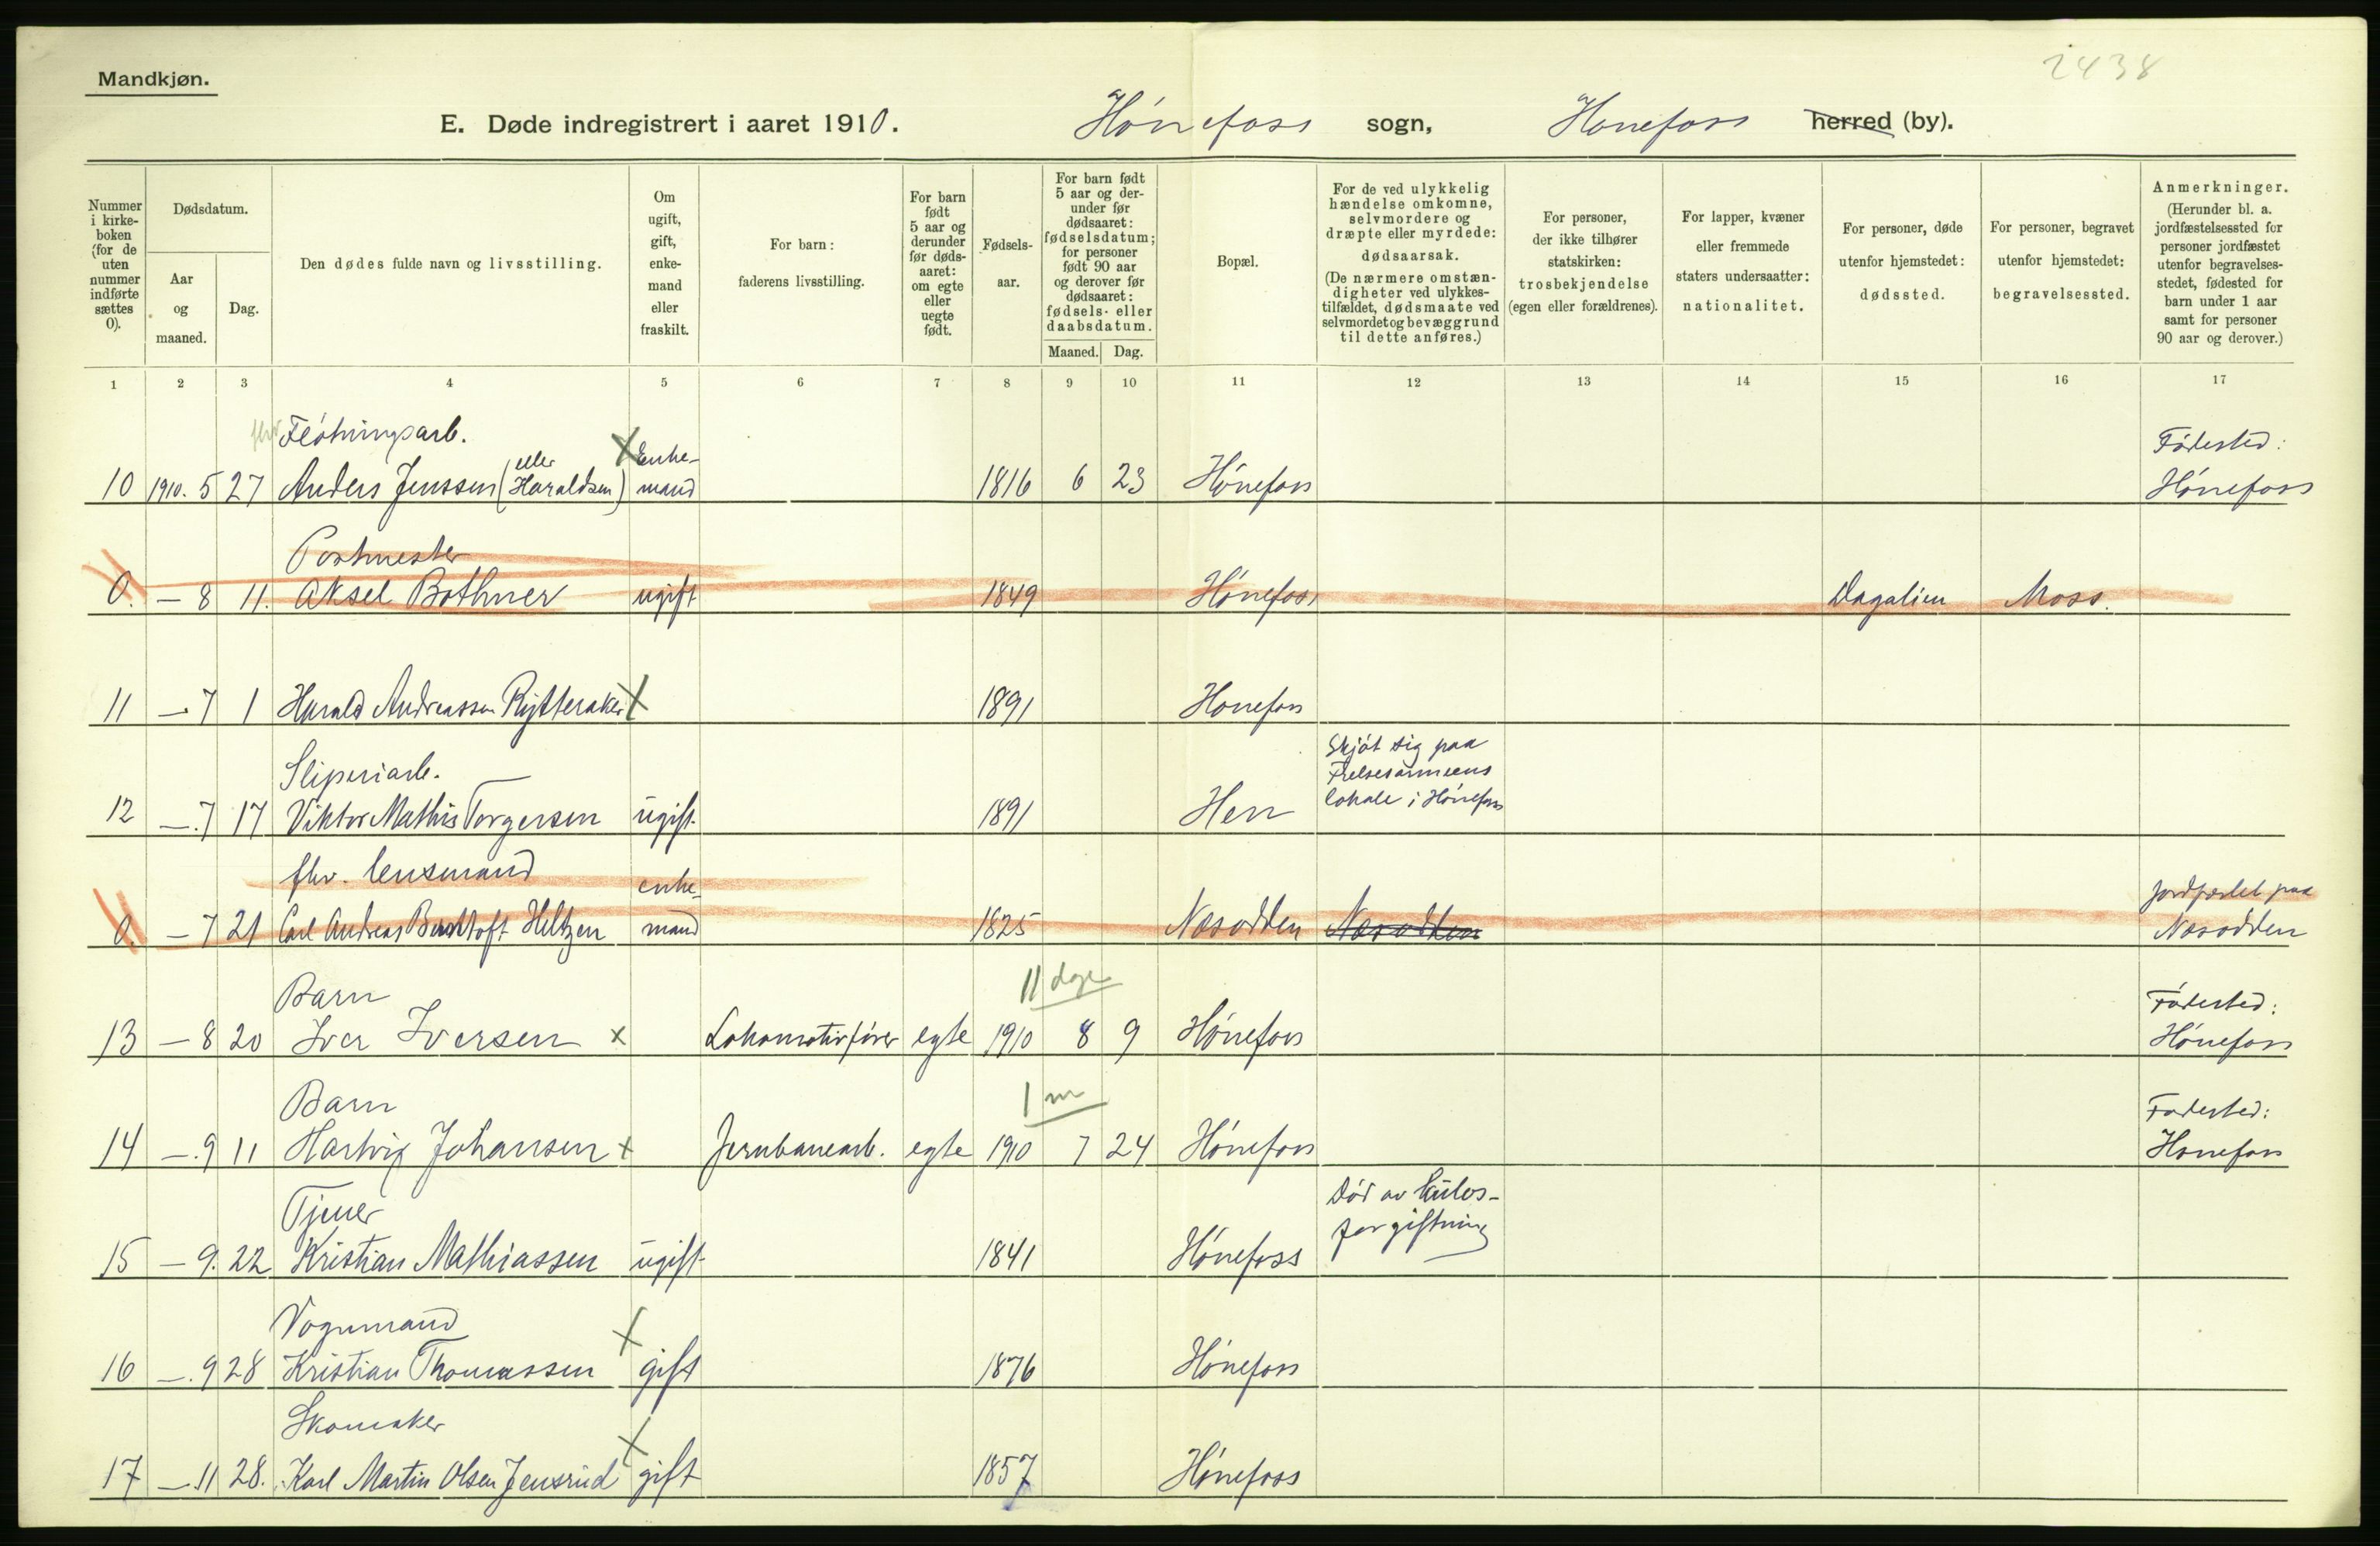 2438
Mandkjøn.
E. Døde indregistrert i aaret 1910. Hønefoss sogn, Hønefoss herred (by).
Nummer i kirke-boken (for de uten nummer indførte sættes 0).
Dødsdatum.
Aar og maaned.
Dag.
Den dødes fulde navn og livsstilling.
Om ugift, gift, enke-mand eller fraskilt.
For barn: faderens livsstilling.
For barn født 5 aar og derunder før døds-aaret: om egte eller uegte født.
Fødsels-aar.
For barn født 5 aar og der-under før dødsaaret: fødselsdatum; for personer født 90 aar og derover før dødsaaret: fødsels- eller daabsdatum.
Maaned. Dag.
Bopæl.
For de ved ulykkelig hændelse omkomne, selvmordere og dræpte eller myrdede: dødsaarsak. (De nærmere omstæn-digheter ved ulykkes-tilfældet, dødsmaate ved selvmordet og bevæggrund til dette anføres.)
For personer, der ikke tilhører statskirken: trosbekjendelse (egen eller forældrenes).
For lapper, kvæner eller fremmede staters undersaatter: nationalitet.
For personer, døde utenfor hjemstedet: dødssted.
For personer, begravet utenfor hjemstedet: begravelsessted.
Anmerkninger. (Herunder bl. a. jordfæstelsessted for personer jordfæstet utenfor begravelses-stedet, fødested for barn under 1 aar samt for personer 90 aar og derover.)
1 2 3 4 5 6 7 8 9 10 11 12 13 14 15 16 17
fhv Fløtningsarb. Enke- Fødested:
10 1910. 5 27 Anders Jenssen (eller Haraldsen) X mand 1816 6 23 Hønefoss Hønefoss
Postmester
0. — 8 11. Aksel Bothner ugift 1849 Hønefoss Dagalien Moss.
11 — 7 1 Harald Andreassen Rytteraker X 1891 Hønefoss
Sliperiarb. Skjøt sig paa Frelsesarmeens lokale i Hønefoss
12 — 7 17 Viktor Mathis Torgersen ugift 1891 Hen
fhv. lensmand enke- jordfæstet paa
0. — 7 21 Carl Andreas Hiltzen mand 1825 Næsodden Næsodden Næsodden
Barn 11 dge Fødested:
13 — 8 20 Iver Iversen x Lokomotivfører egte 1910 8 9 Hønefoss Hønefoss
Barn 1 m Fødested:
14 — 9 11 Hartvig Johansen x Jernbanearb. egte 1910 7 24 Hønefoss Hønefoss
Tjener Død av kulos-forgiftning
15 — 9. 22 Kristian Mathiassen ugift 1841 Hønefoss
Vognmand
16 — 9 28 Kristian Thomassen X gift 1876 Hønefoss
Skomaker
17 — 11 28. Karl Martin Olsen Jensrud X gift 1857 Hønefoss